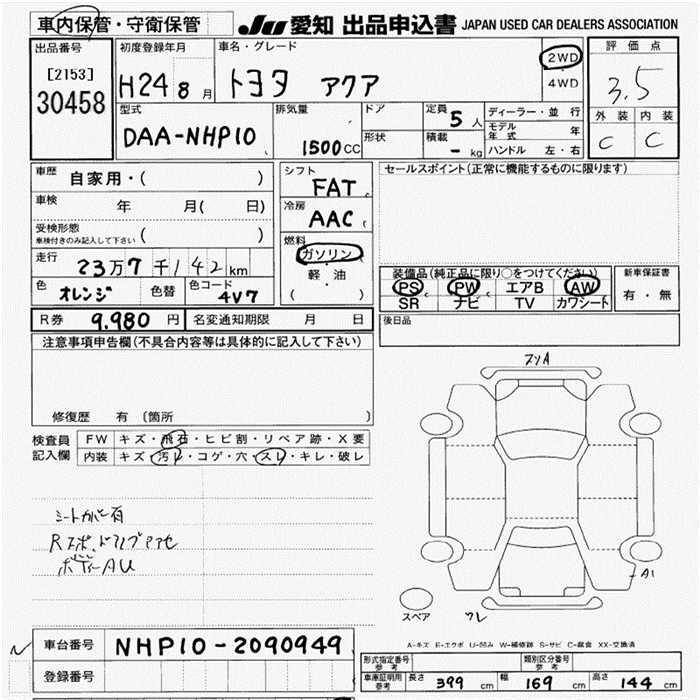 車内保管・守衛保管
JU 愛知 出品申込書 JAPAN USED CAR DEALERS ASSOCIATION
出品番号
[2153]
30458
初度登録年月
H24 8 月
車名・グレード
トヨタ アクア
2WD
4WD
評価点
3.5
外装 内装
C C
型式
DAA-NHP10
排気量
1500 CC
ドア
形状
定員 5 人
積載 - kg
ディーラー・並行
モデル年式 年
ハンドル 左・右
車歴 自家用・( )
車検 年 月( 日)
受検形態
車検付きのみ記入して下さい ( )
走行 23万7千142 km
色 オレンジ 色替 色コード 4V7
シフト
FAT
冷房
AAC
燃料
ガソリン
・
軽・油
( )
セールスポイント(正常に機能するものに限ります)
装備品(純正品に限り○をつけてください)
PS PW エアB AW
SR ナビ TV カワシート
新車保証書
有・無
R券 9.980 円 名変通知期限 月 日
後日品
注意事項申告欄(不具合内容等は具体的に記入して下さい)
修復歴 有 〔箇所 〕
検査員記入欄
FW キズ・飛石・ヒビ割・リペア跡・X要
内装 キズ・汚レ・コゲ・穴・スレ・キレ・破レ
シートカバー有
ボデーAU
A1
スペア
A-キズ E-エクボ U-凹み W-補修跡 S-サビ C-腐食 XX-交換済
車台番号 NHP10-2090949
登録番号
型式指定番号
参考
類別区分番号
参考
車庫証明用
参考
長さ 399 cm 幅 169 cm 高さ 144 cm